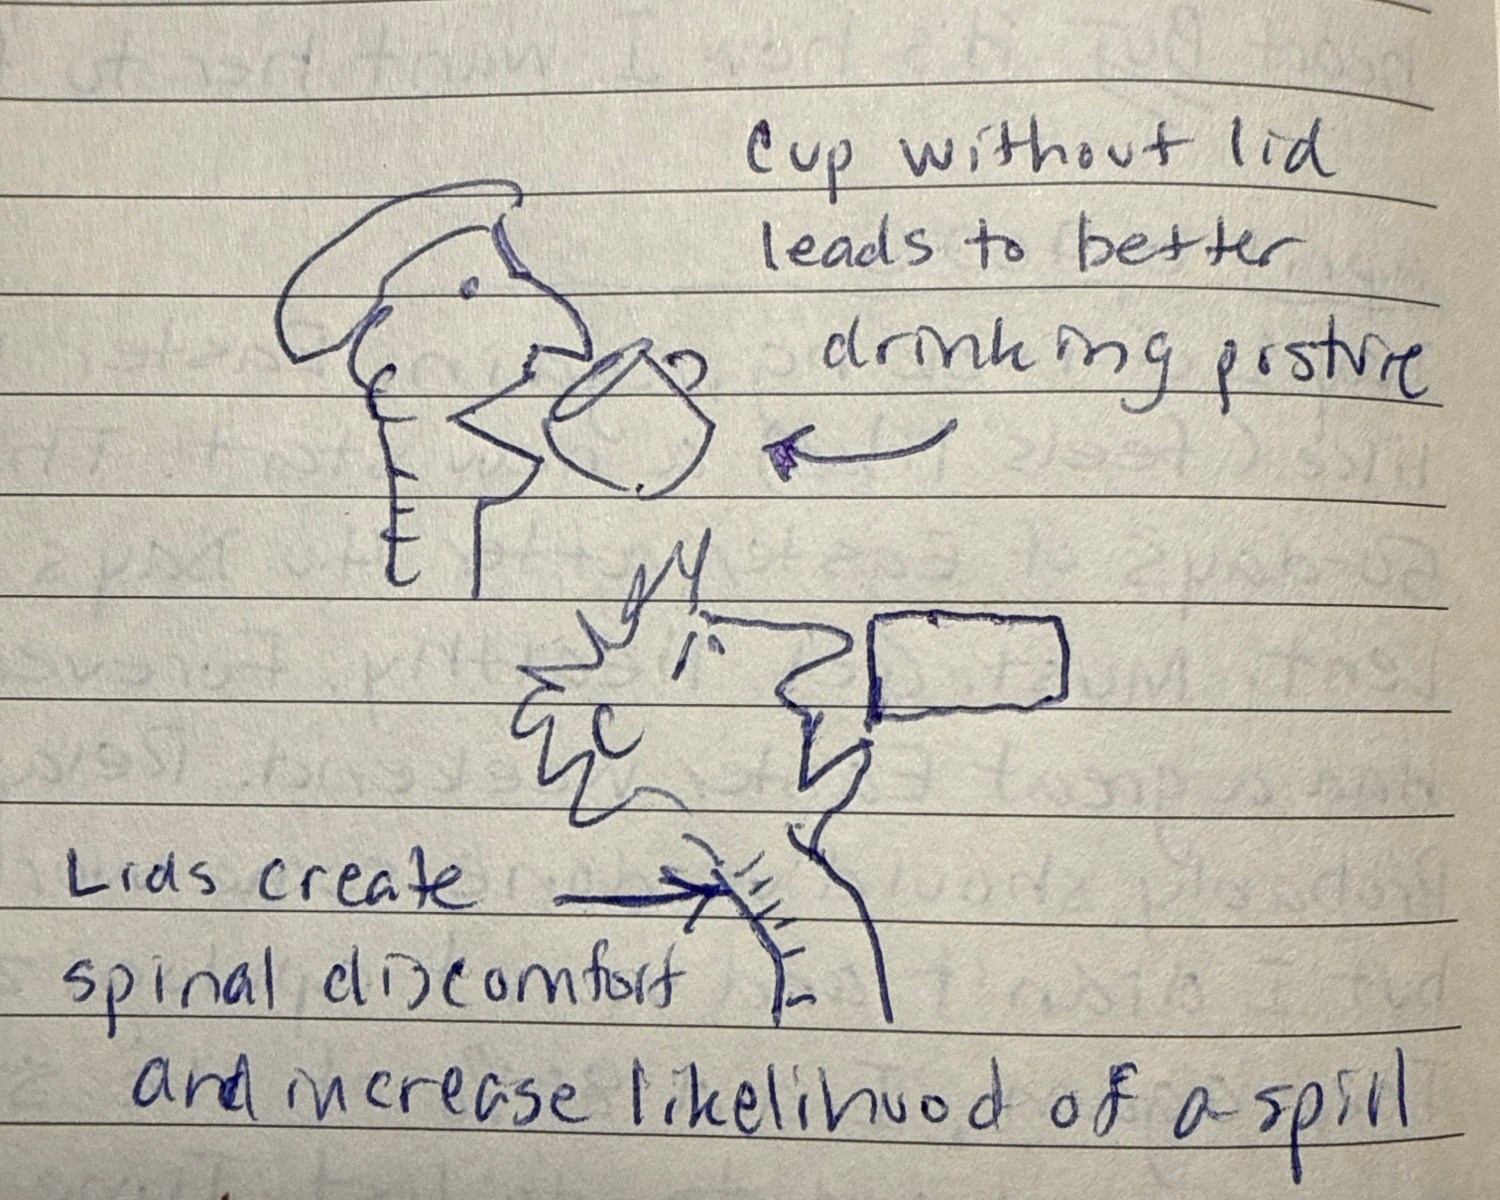 Cup without lid
leads to better
drinking posture
Lids create
spinal discomfort
and increase likelihood of a spill